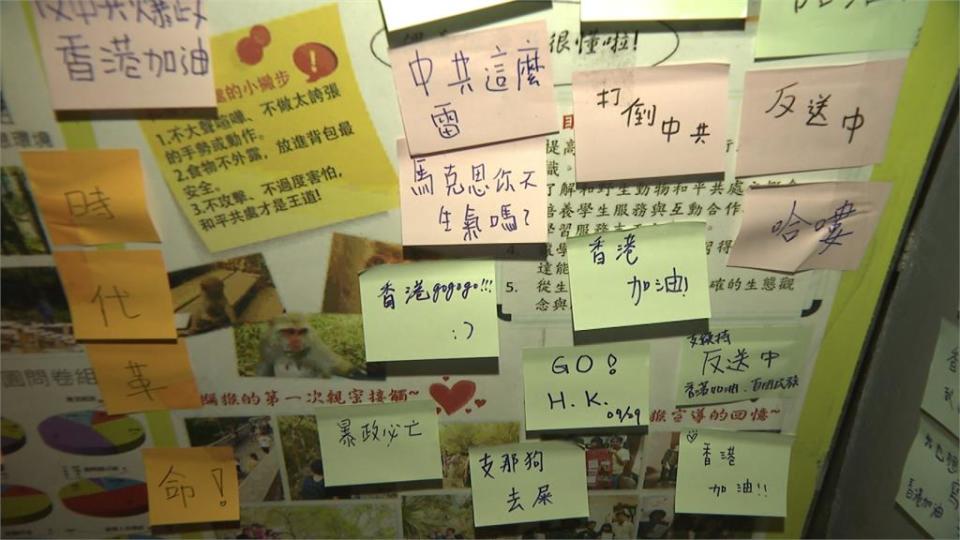 反中共爆政
香港加油
很懂啦!
的小撇步
1.不大聲喧嘩、不做太誇張
的手勢或動作。
2.食物不外露,放進背包最
安全。
3.不攻擊、不過度害怕,
和平共處才是王道!
中共這麼
雷
馬克思你不
生氣嗎?
打
倒
中共
反送中
哈嘍
時
代
革
命!
香港gogogo!!!
:)
香港
加油!
了解和野生動物和平共處
培養學生服務與互動合作
5.
從生
確的生態觀
念與
GO!
H.K.
09/29
反送中
香港加油
獼猴的第一次親密接觸~
猴宣導的回憶~
圖問卷組
暴政必亡
支那狗
去屎
香港
加油!!
香港加油